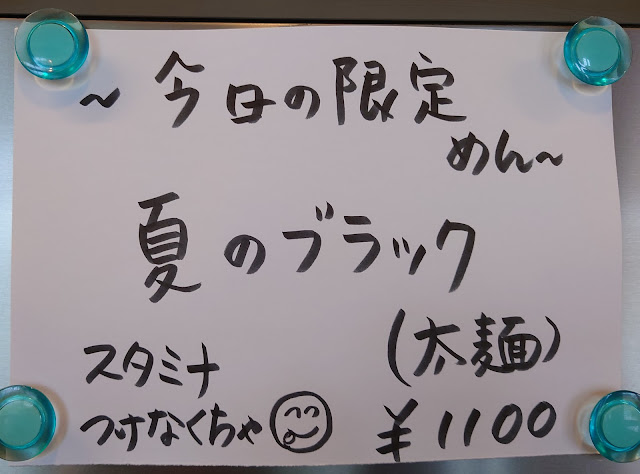 ～今日の限定
めん～
夏のブラック
(太麺)
スタミナ
つけなくちゃ
¥1100